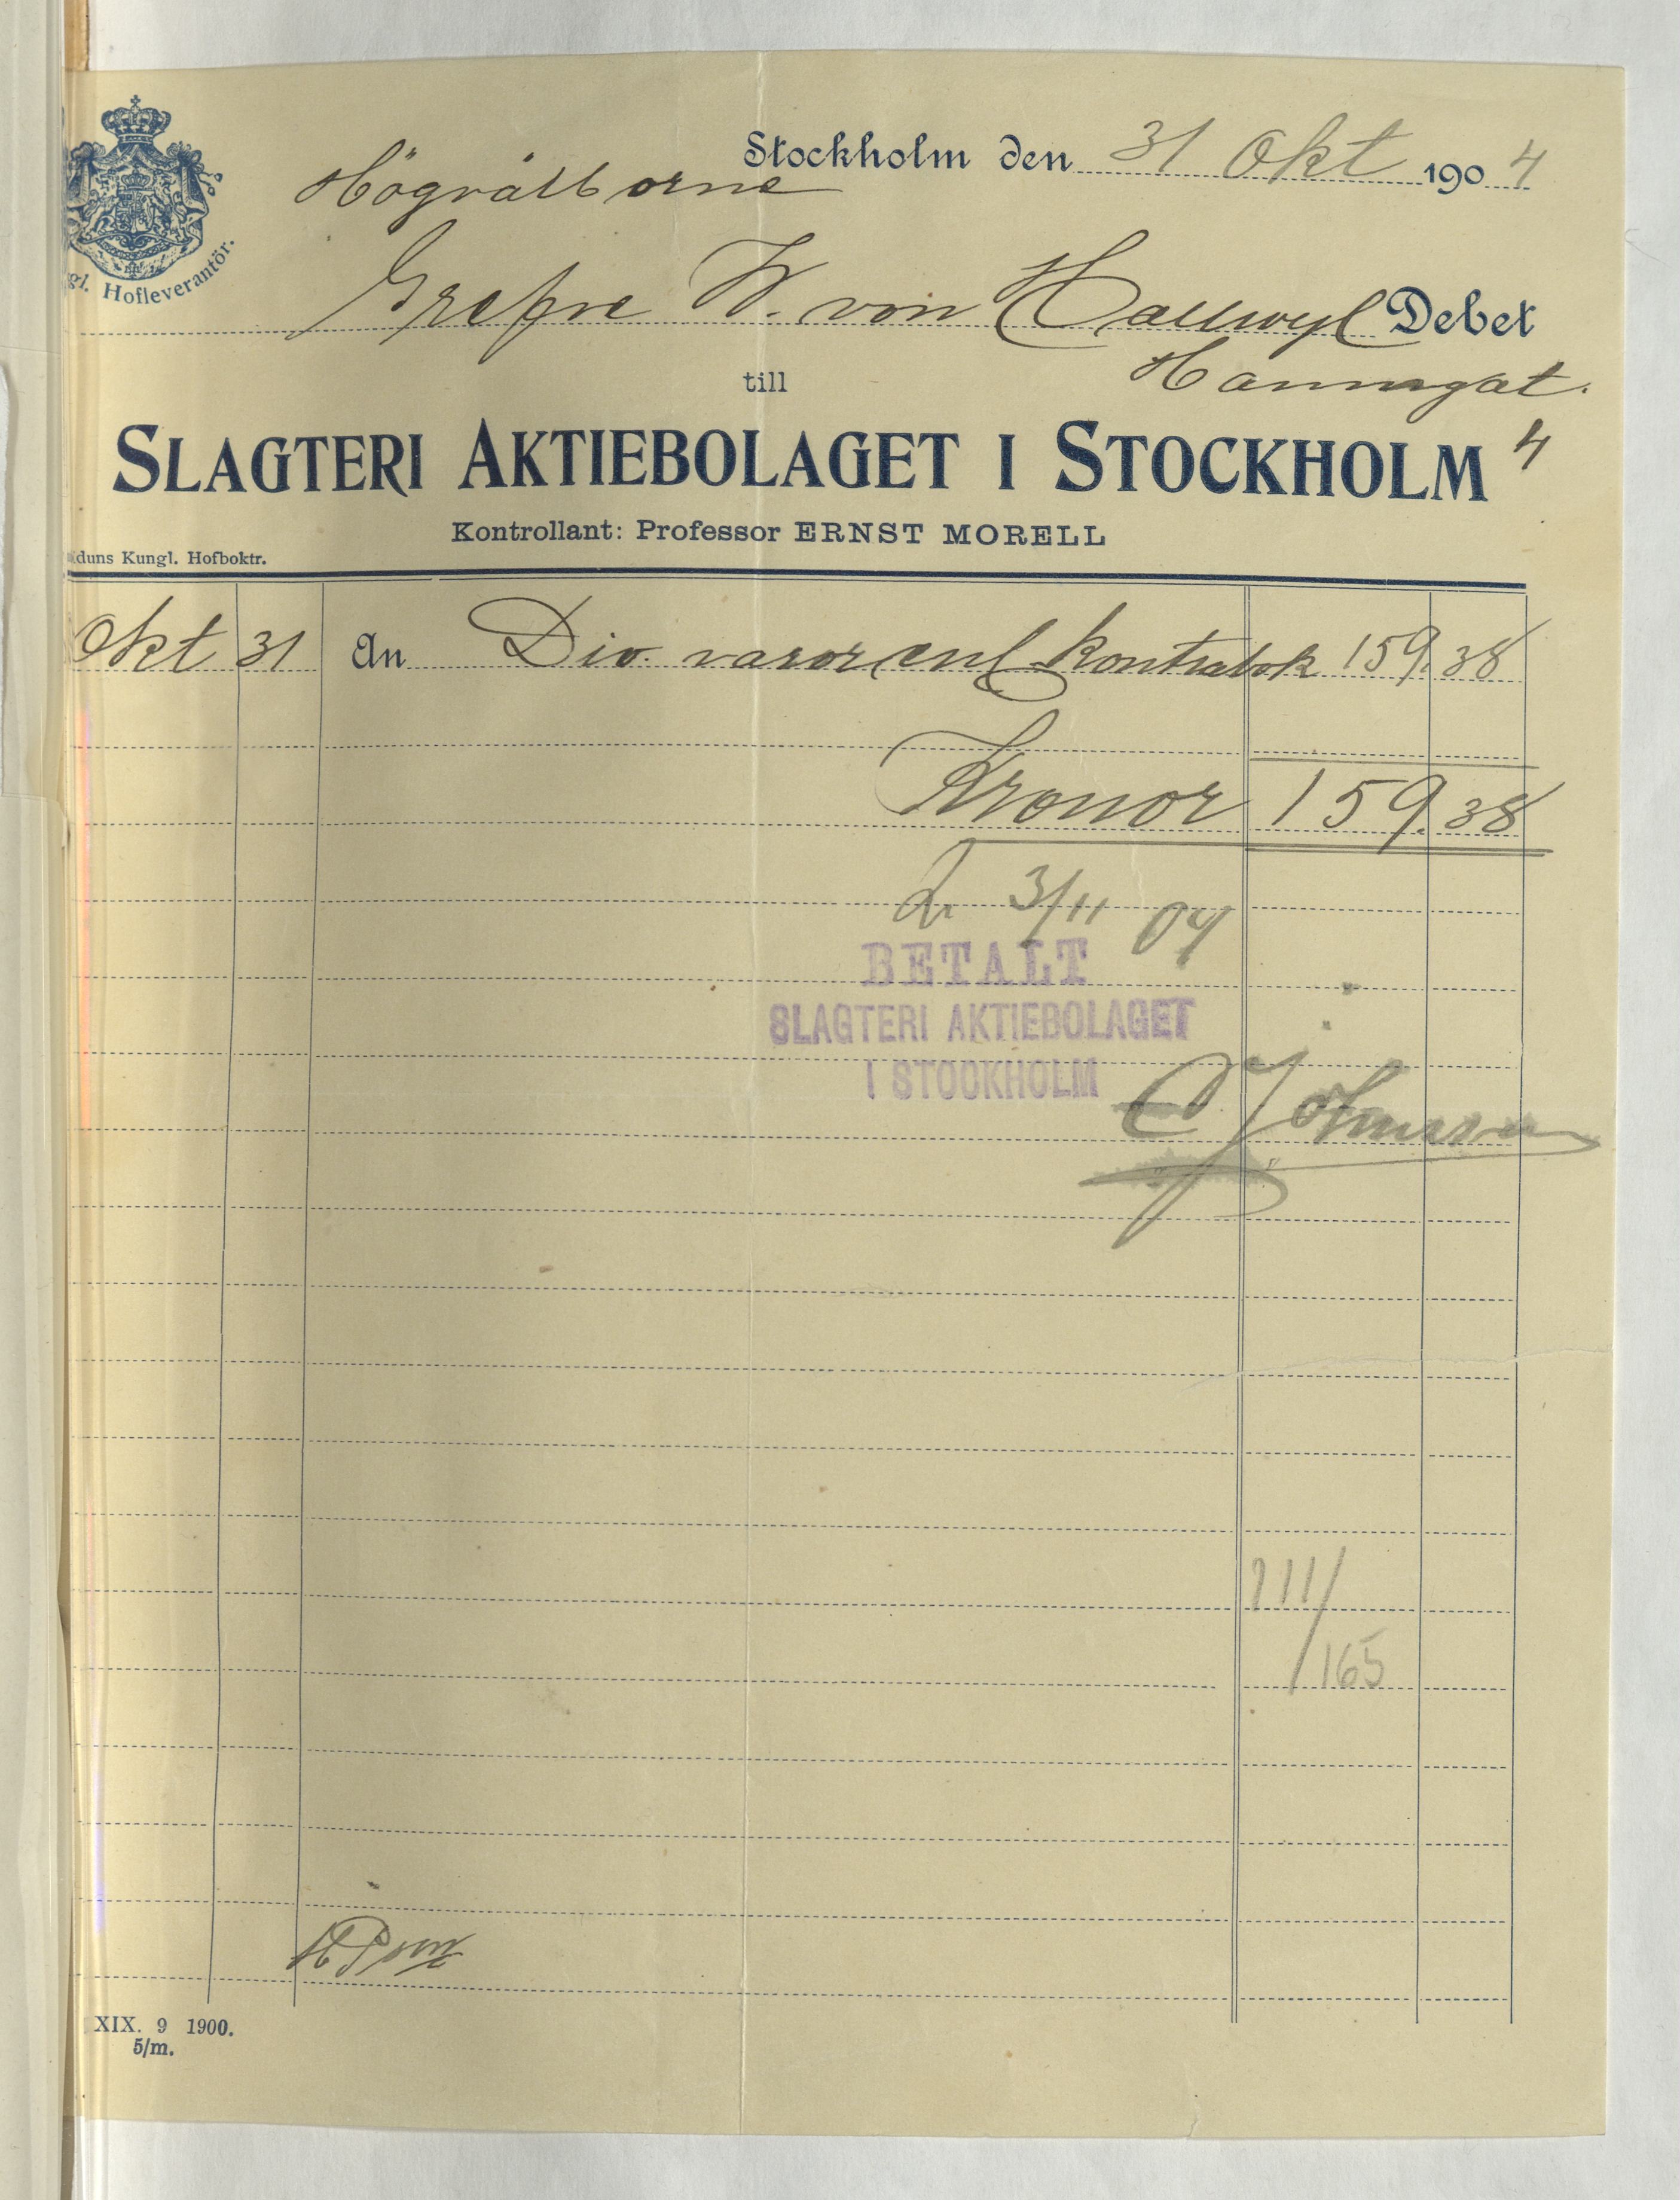 Stockholm den 31 Okt 1904
Högvälborne
gl. Hofleverantör.
Grefve W. von Hallwyl Debet
till
Hamngat.
4
SLAGTERI AKTIEBOLAGET I STOCKHOLM
Kontrollant: Professor ERNST MORELL
duns Kungl. Hofboktr.
Okt 31 An Div. varor enl kontrabok 159. 38
Kronor 159. 38
3/11 04
BETALT
SLAGTERI AKTIEBOLAGET
I STOCKHOLM
Johnson
111/
165
XIX. 9 1900.
5/m.